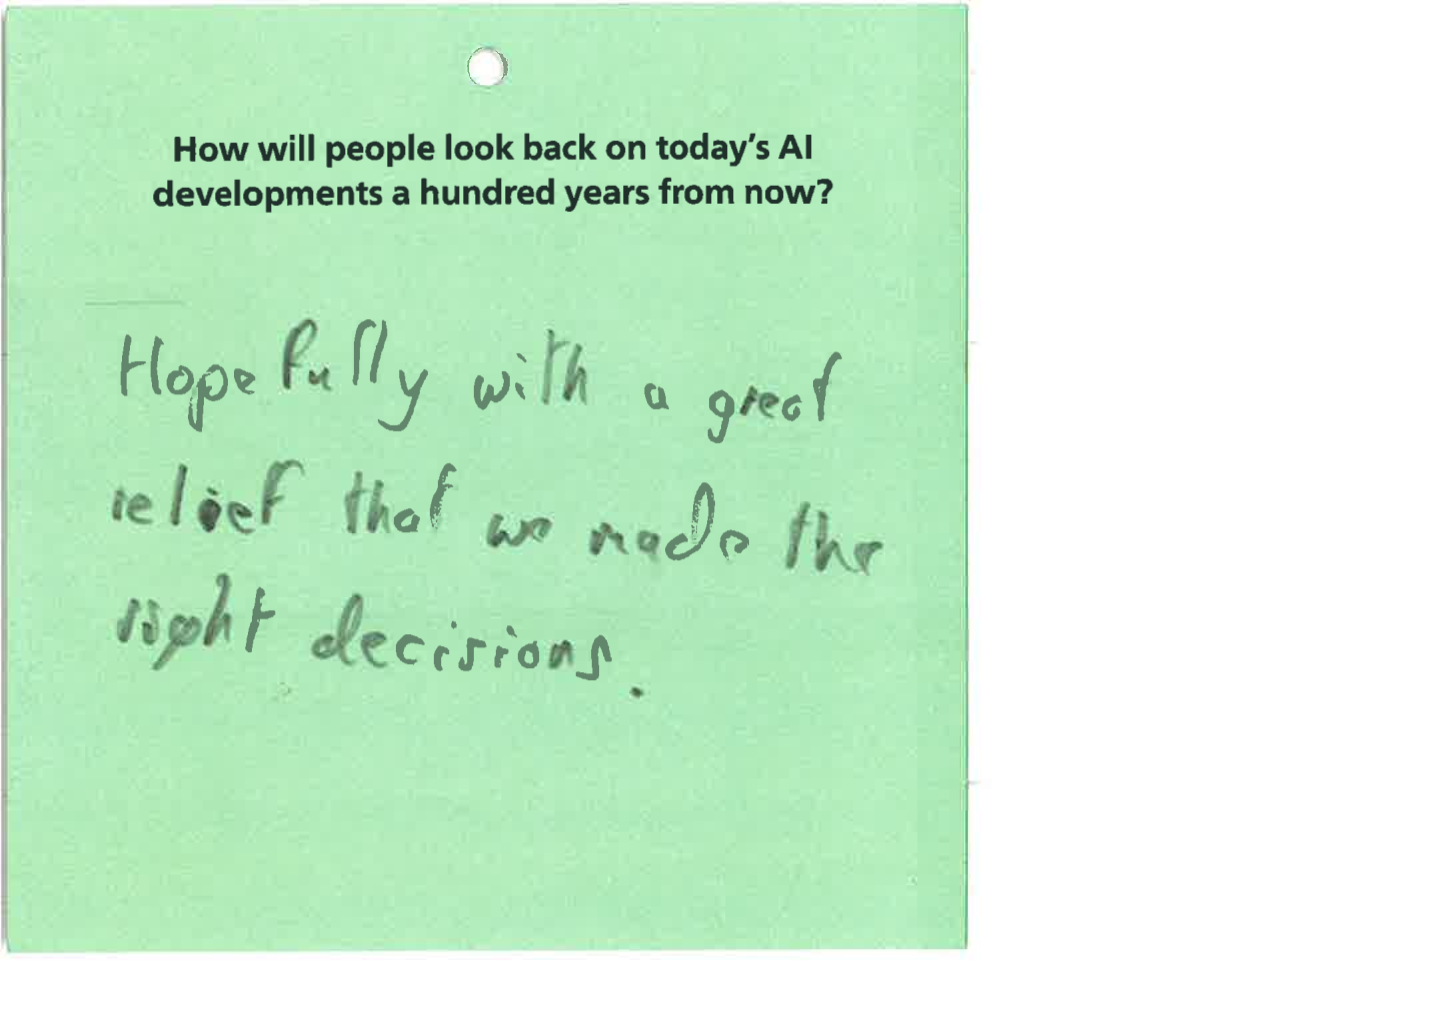 How will people look back on today's AI
developments a hundred years from now?
Hopefully with a great
relief that we made the
right decisions.